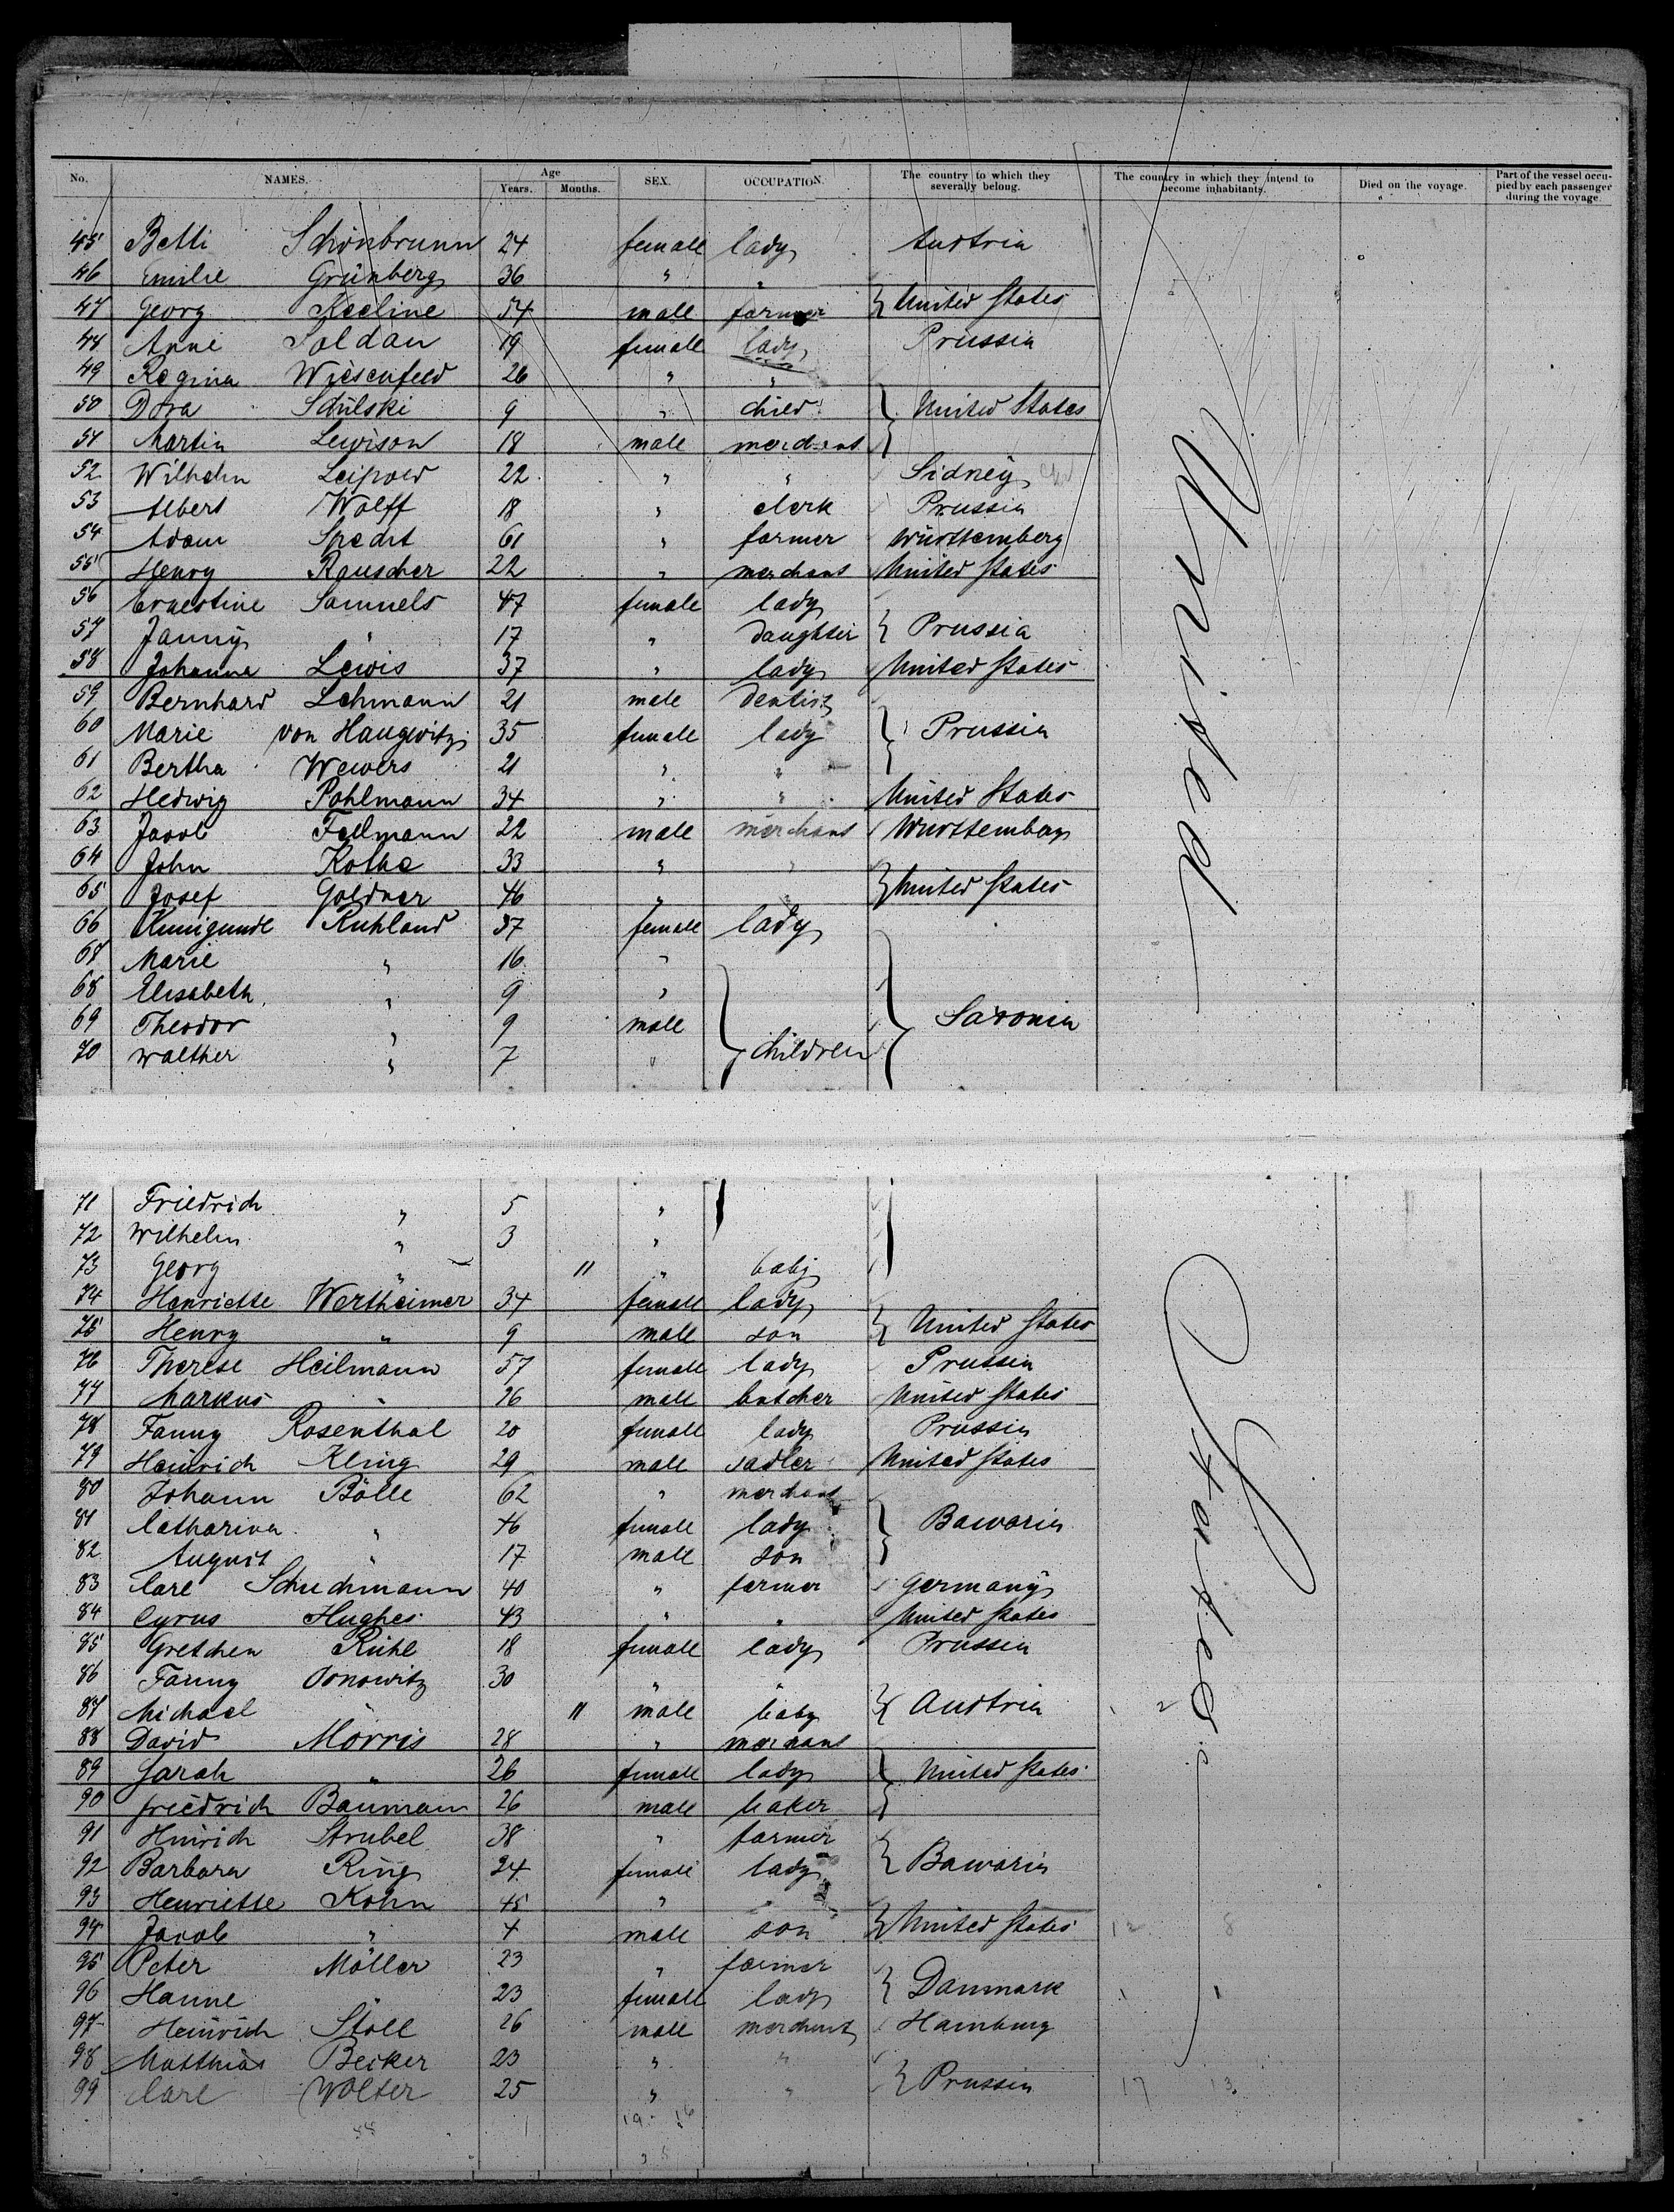 No. NAMES. Age Years. Months. SEX. OCCUPATION. The country to which they severally belong. The country in which they intend to become inhabitants. Died on the voyage. Part of the vessel occupied by each passenger during the voyage.
45 Betti Schönbrunn 24 female lady Austria
46 Emilie Grünberg 36 " "
47 Georg Keeline 54 male farmer } United States
48 Anne Soldan 19 female lady Prussia
49 Regina Wiesenfeld 26 " "
50 Dora Schülski 9 " child } United States
51 Martin Lewison 18 male merchant
52 Wilhelm Leipold 22 " " Sidney
53 Albert Wolff 18 " clerk Prussia
54 Adam Specht 61 " farmer Württemberg
55 Henry Rauscher 22 " merchant United States
56 Ernestine Samuels 47 female lady
57 Janny " 17 " daughter } Prussia
58 Johanna Lewis 37 " lady United States
59 Bernhard Lehmann 21 male dentist
60 Marie von Haugwitz 35 female lady } Prussia
61 Bertha Wewers 21 " "
62 Hedwig Pohlmann 34 " " United States
63 Jacob Fellmann 22 male merchant Württemberg
64 John Kothe 33 " "
65 Josef Goldner 46 " " } United States
66 Kunigunde Ruhland 37 female lady
67 Marie " 16 "
68 Elisabeth " 9 "
69 Theodor " 9 male } Saxonia
70 Walther " 7 " } children
United
71 Friedrich " 5 "
72 Wilhelm " 3 "
73 Georg " 11 " baby
74 Henriette Wertheimer 34 female lady
75 Henry " 9 male son } United States
76 Therese Heilmann 57 female lady Prussia
77 Markus " 26 male butcher United States
78 Fanny Rosenthal 20 female lady Prussia
79 Heinrich Kling 29 male sadler United States
80 Johann Bölle 62 " merchant
81 Catharina " 46 female lady } Bavaria
82 August " 17 male son
83 Carl Schuchmann 40 " farmer Germany
84 Cyrus Hughes 43 " " United States
85 Gretchen Rühl 18 female lady Prussia
86 Fanny Ornowitz 30 " "
87 Michael 11 male baby } Austria
88 David Morris 28 " merchant
89 Sarah " 26 female lady } United States
90 Friedrich Baumann 26 male baker
91 Hinrich Strubel 38 " farmer
92 Barbara Ring 24 female lady } Bavaria
93 Henriette Kohn 45 " "
94 Jacob " 4 male son } United States
95 Peter Möller 23 " farmer
96 Hanne " 23 female lady } Danmark
97 Heinrich Stoll 26 male merchant Hamburg
98 Matthias Becker 23 " "
99 Carl Wolter 25 " " } Prussia
17 13
19 16
States.